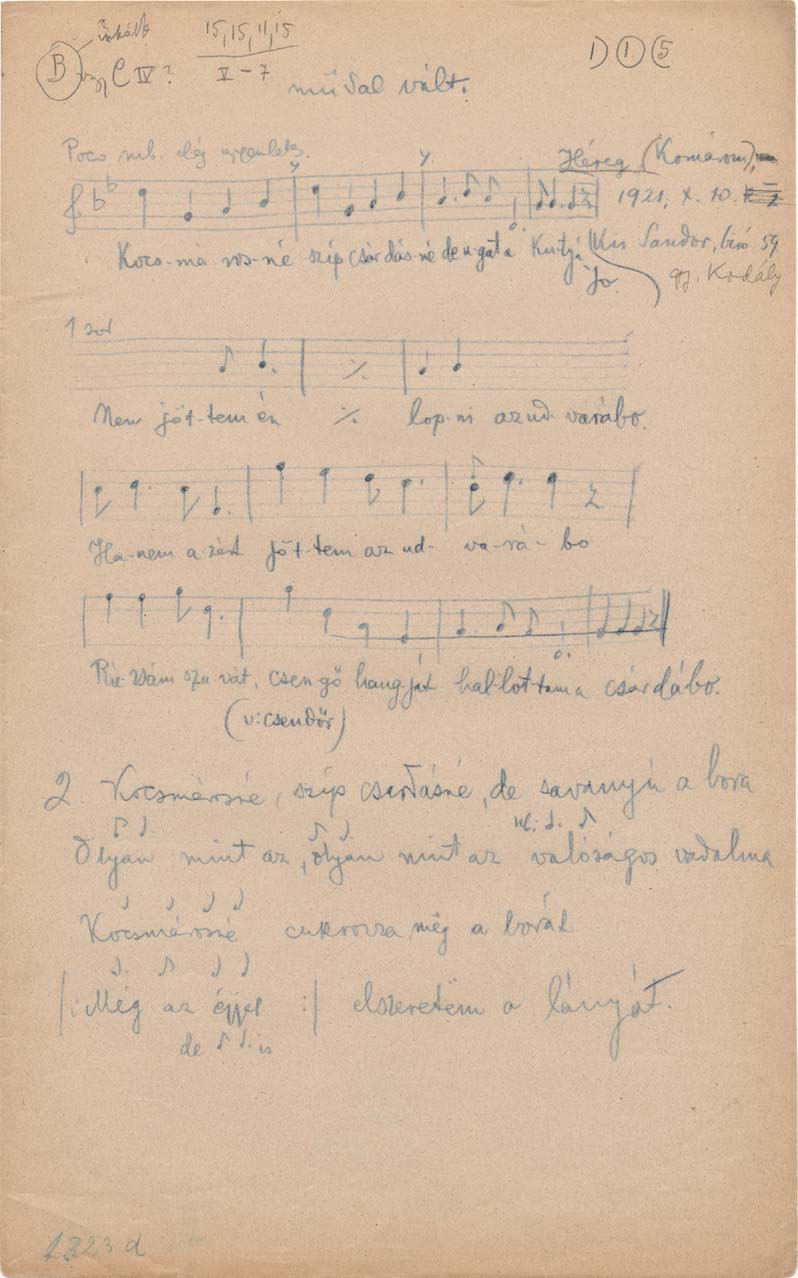 inkább
B vagy C IV?
15, 15, 11, 15
V – 7
1) 1. 5
műdal vált.
Poco rub. elég egyenletes.
Héreg (Komárom),
1921, X. 10.
Kis Sándor, biró 59
gy. Kodály
Kocs-má-ros-né szíp csárdás-né de u-gat a Kutyá
jo.
1 sor
Nem jöt-tem én ·/· lop-ni az ud-varábo.
Ha-nem a-zért jöt-tem az ud- va-rá- bo
Ró-zsám sza-vát, csen-gő hang-ját hal-lot-tam a csárdábo.
(v: csendőr)
2. Kocsmárosné, szíp csárdásné, de savanyú a bora
Olyan mint az, olyan mint az valóságos vadalma
Kocsmárosné cukrozza még a borát
|: Még az éjjel :| elszeretëm a lányát.
de is
1323 d